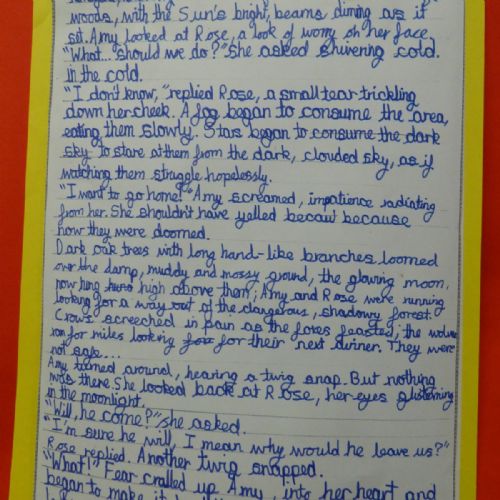 woods, with the Sun's bright beams diming as it
set. Amy looked at Rose, a look of worry on her face.
"What... should we do?" she asked shivering cold.
in the cold.
"I don't know," replied Rose, a small tear trickling
down her cheek. A fog began to consume the area,
eating them slowly. Stars began to consume the dark
sky to stare at them from the dark, clouded sky, as if
watching them struggle hopelessly.
"I want to go home!" Amy screamed, impatience radiating
from her. She shouldn't have yelled becau because
now they were doomed.
Dark oak trees with long hand-like branches loomed
over the damp, muddy and mossy ground, the glowing moon,
now hung high above them; Amy and Rose were running
looking for a way out of the dangerous, shadowy forest.
Crows screeched in pain as the foxes feasted; the wolves
ran for miles looking for for their next dinner. They were
not safe...
Amy turned around, hearing a twig snap. But nothing
was there. She looked back at Rose, her eyes glistening
in the moonlight.
"Will, he come?" she asked.
"I'm sure he will, I mean why would he leave us?"
Rose replied. Another twig snapped.
"What!" Fear cralled up Amy, into her heart and
began to make it